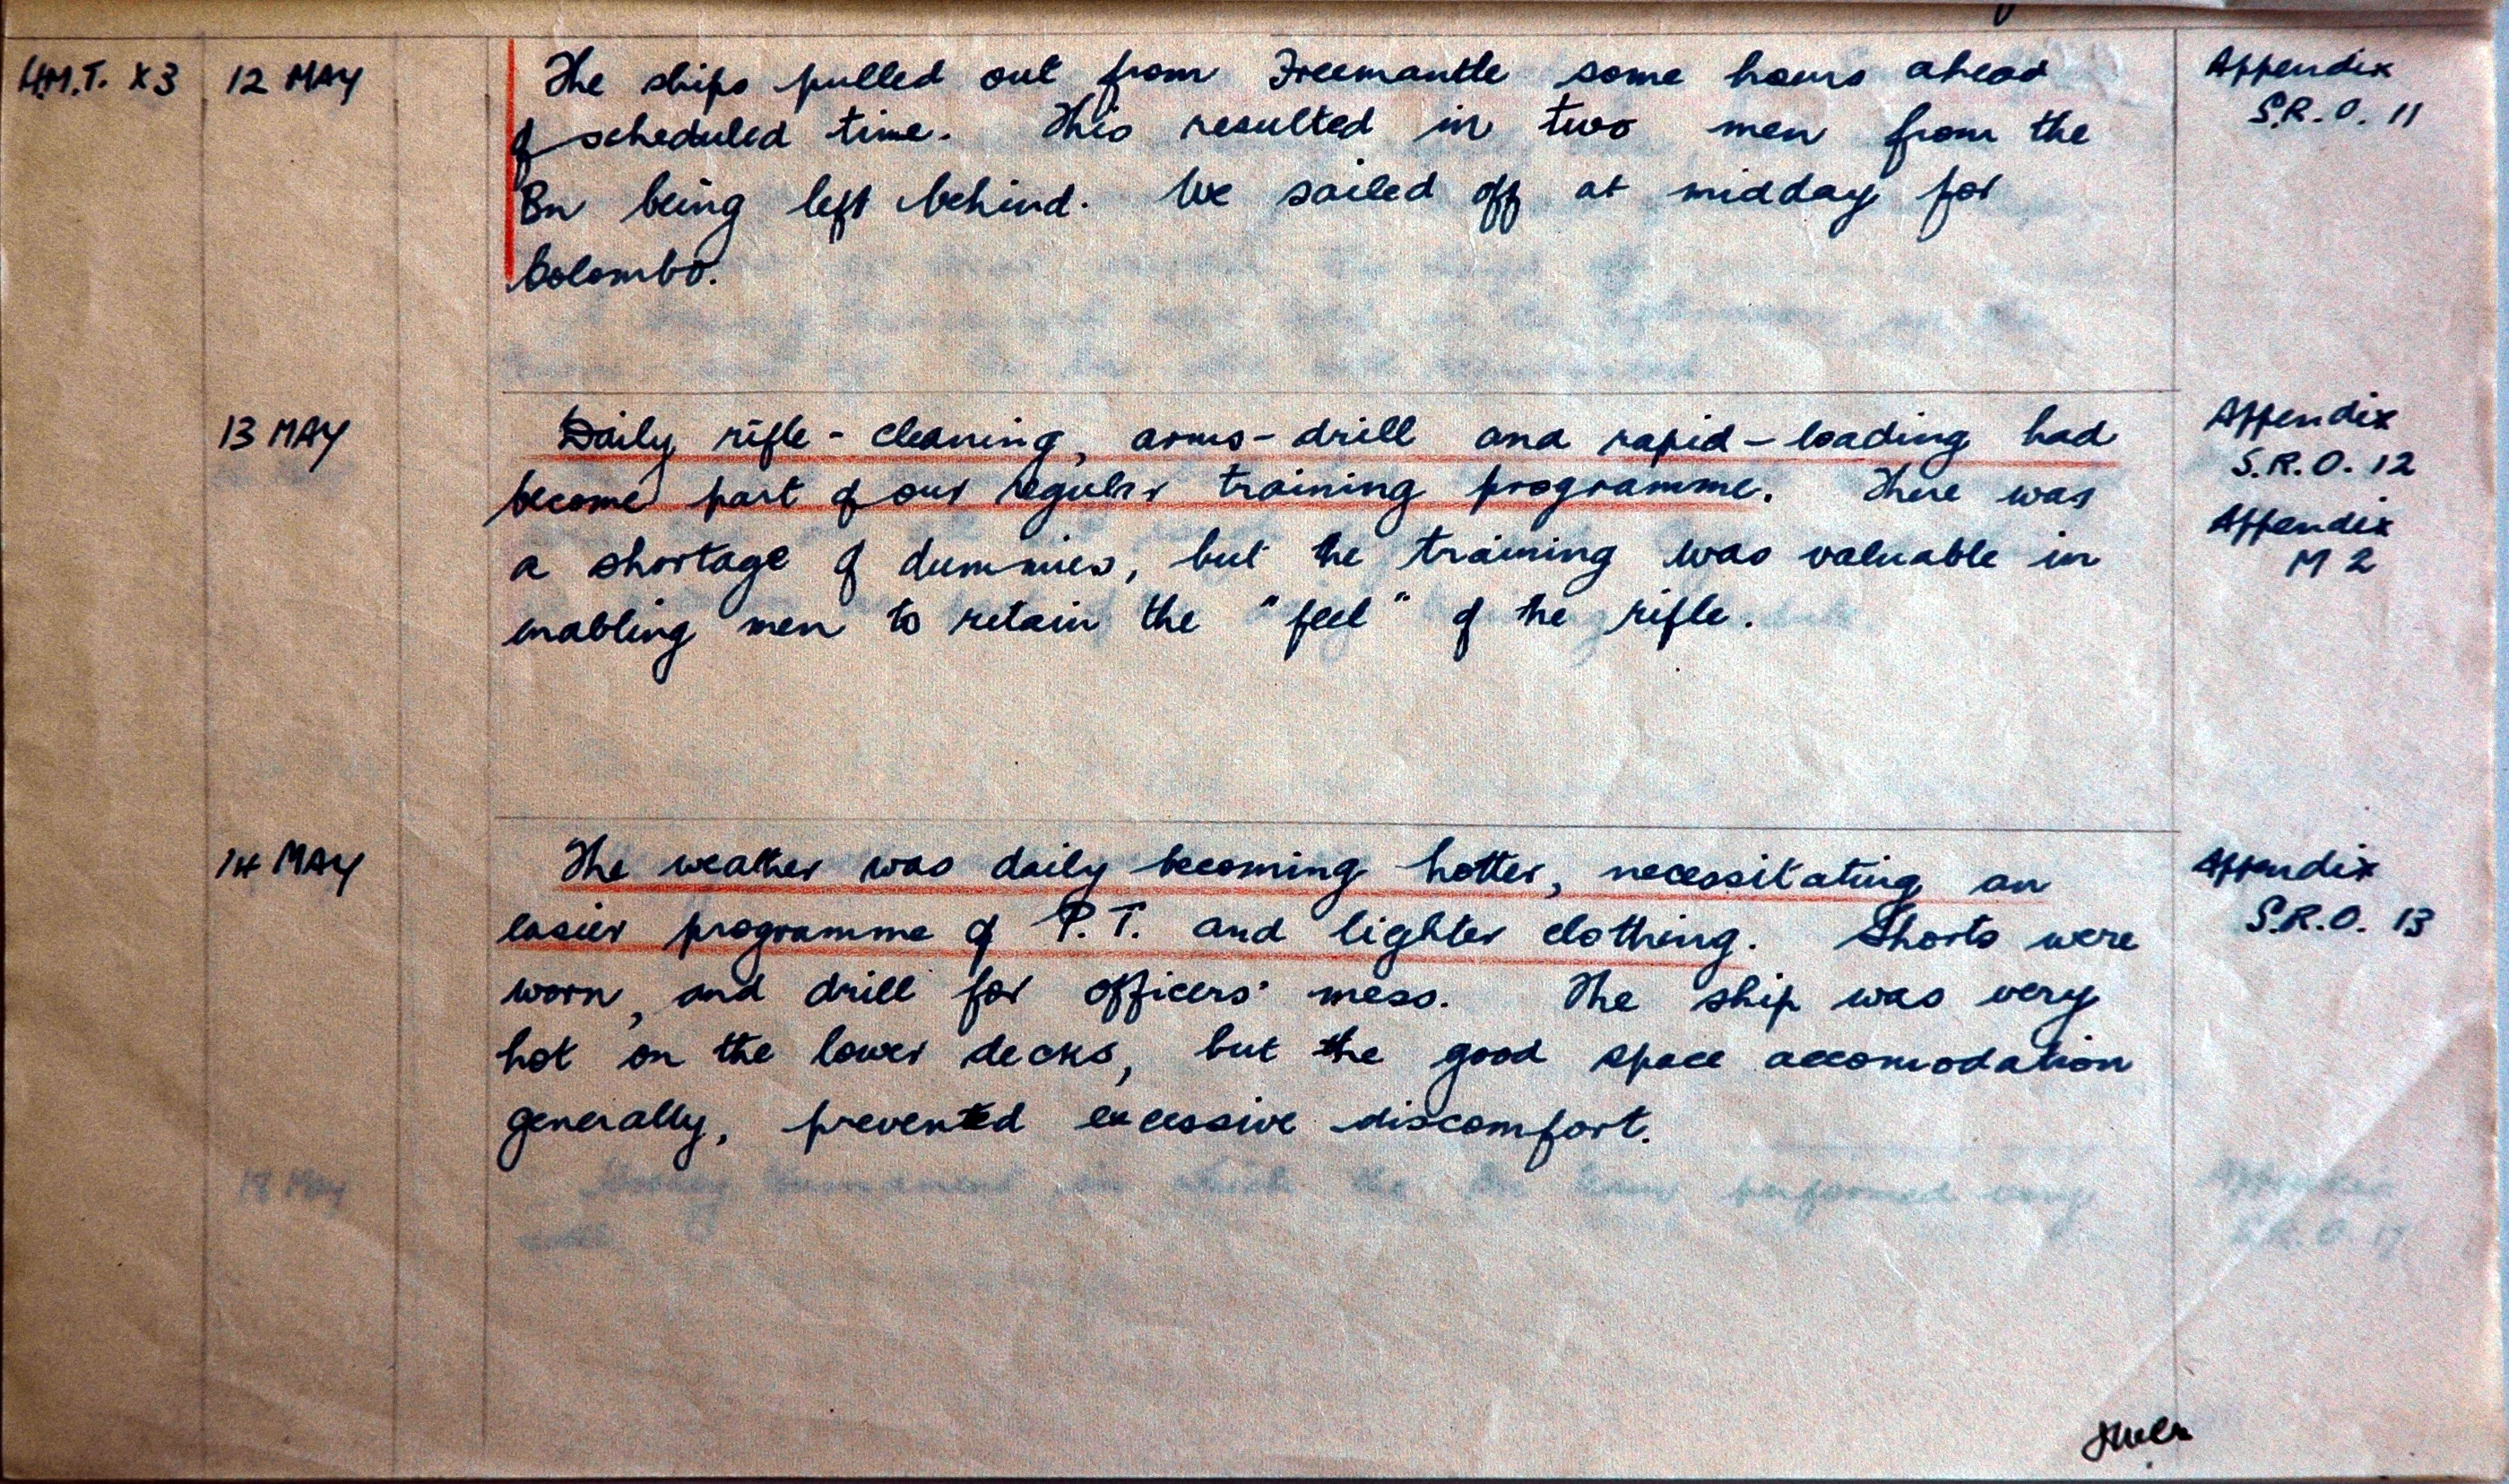 H.M.T. X3 12 MAY The ships pulled out from Freemantle some hours ahead Appendix
of scheduled time. This resulted in two men from the S.R.O. 11
Bn being left behind. We sailed off at midday for
Colombo.
13 MAY Daily rifle-cleaning, arms-drill and rapid-loading had Appendix
become part of our regular training programme. There was S.R.O. 12
a shortage of dummies, but the training was valuable in Appendix
enabling men to retain the "feel" of the rifle. M 2
14 MAY The weather was daily becoming hotter, necessitating an Appendix
easier programme of P.T. and lighter clothing. Shorts were S.R.O. 13
worn, and drill for officers' mess. The ship was very
hot on the lower decks, but the good space accomodation
generally, prevented excessive discomfort.